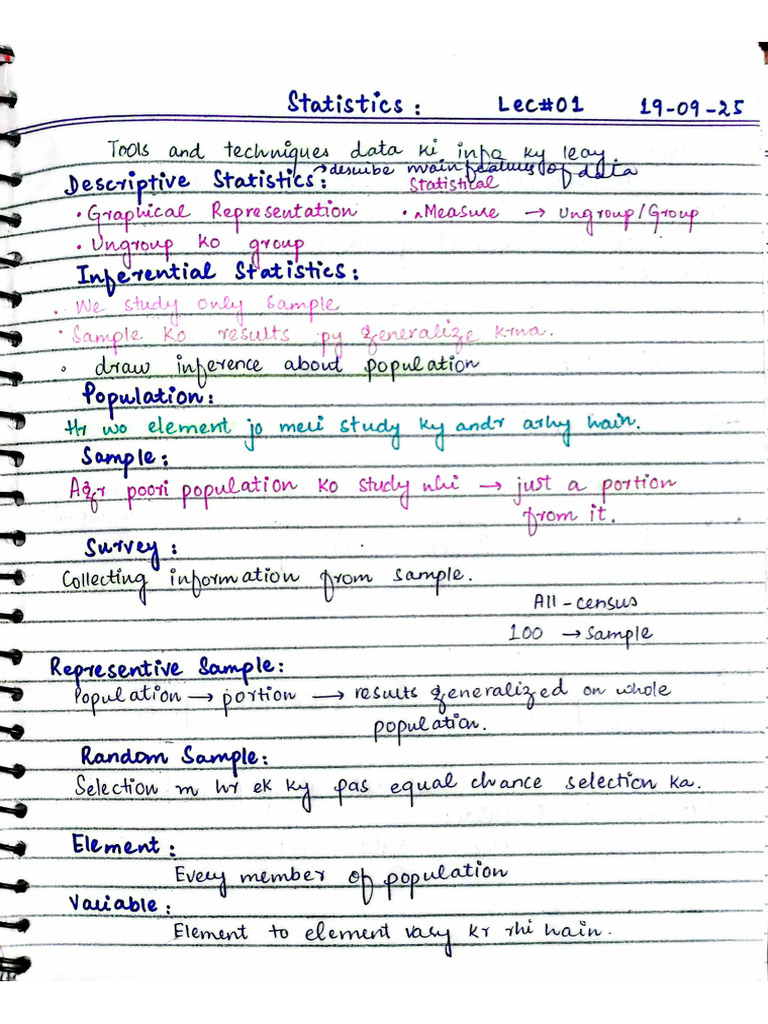 Statistics : Lec#01 19-09-25
Tools and techniques data ki info ky leay
Descriptive Statistics: → describe main features of data
• Graphical Representation • Statistical Measure → Ungroup/Group
• Ungroup ko group
Inferential Statistics:
• We study only sample
• Sample ko results py generalize krna.
• draw inference about population
Population:
Hr wo element jo meri study ky andr arhy hain.
Sample:
Agr poori population ko study nhi → just a portion
from it.
Survey:
Collecting information from sample.
All - census
100 → sample
Representive Sample:
Population → portion → results generalized on whole
population.
Random Sample:
Selection m hr ek ky pas equal chance selection ka.
Element:
Every member of population
Variable:
Element to element vary kr rhi hain.